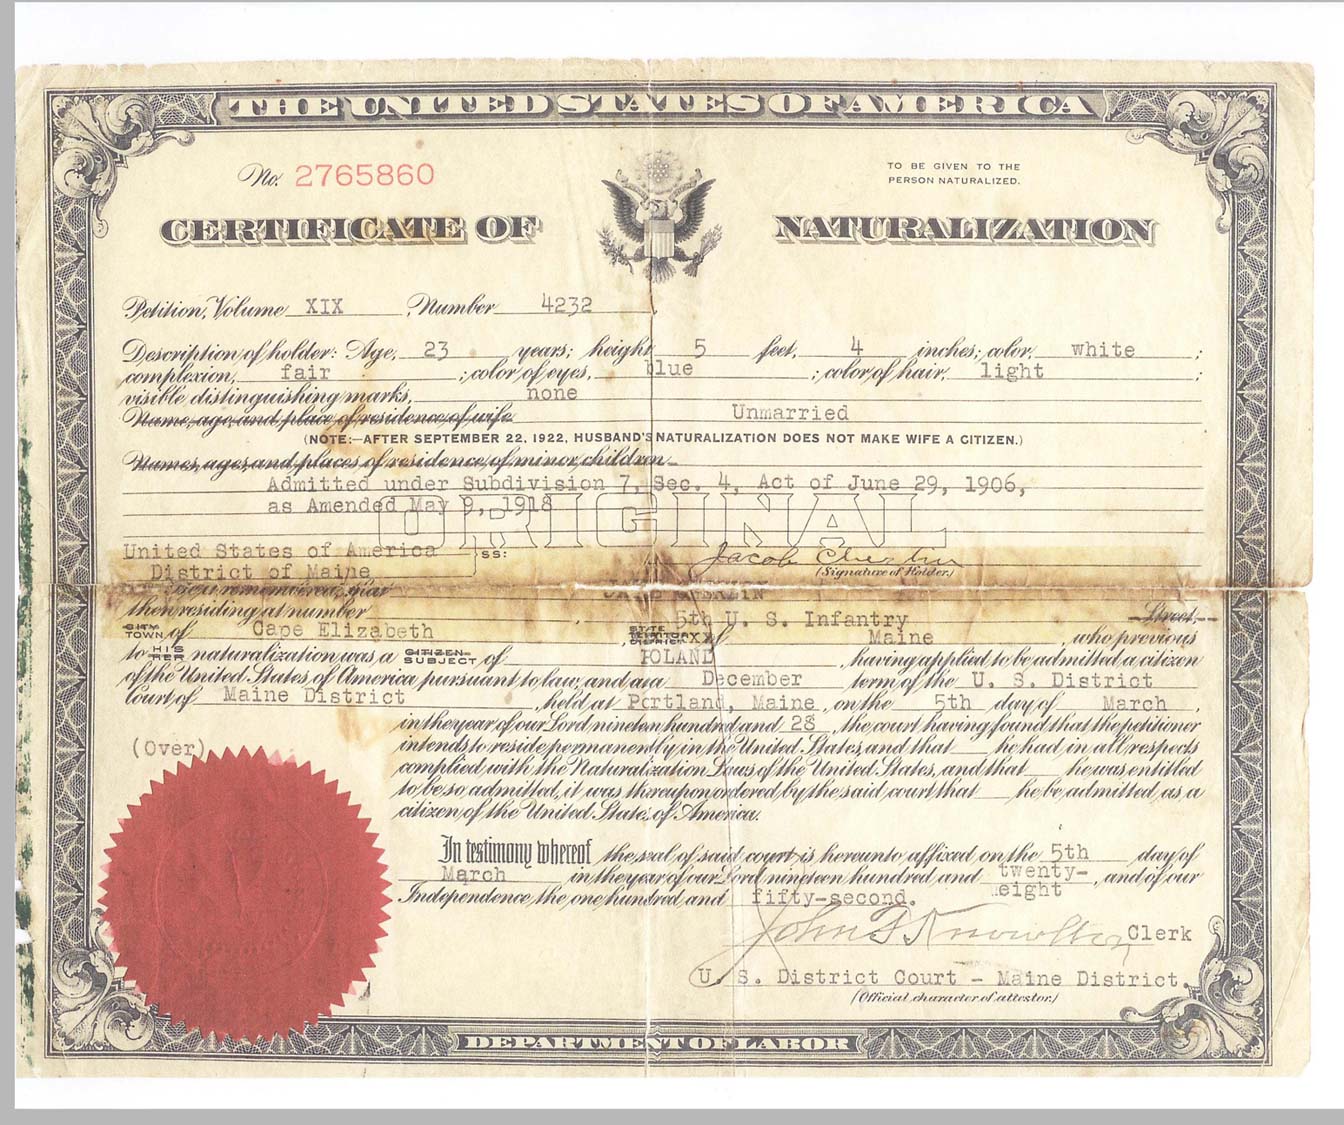 THE UNITED STATES OF AMERICA
No. 2765860
TO BE GIVEN TO THE
PERSON NATURALIZED.
CERTIFICATE OF NATURALIZATION
Petition, Volume XIX, Number 4232
Description of holder: Age, 23 years; height, 5 feet, 4 inches; color, white;
complexion, fair; color of eyes, blue; color of hair, light;
visible distinguishing marks, none
Name, age, and place of residence of wife Unmarried
(NOTE:—AFTER SEPTEMBER 22, 1922, HUSBAND'S NATURALIZATION DOES NOT MAKE WIFE A CITIZEN.)
Names, ages, and places of residence of minor children
Admitted under Subdivision 7, Sec. 4, Act of June 29, 1906,
as Amended May 9, 1918
ORIGINAL
United States of America
District of Maine
} ss:
Jacob
(Signature of Holder.)
Be it remembered, that
then residing at number 5th U. S. Infantry Street,
CITY TOWN of Cape Elizabeth, STATE TERRITORY DISTRICT of Maine, who previous
to HIS HER naturalization was a CITIZEN SUBJECT of POLAND, having applied to be admitted a citizen
of the United States of America pursuant to law, and at a December term of the U. S. District
Court of Maine District, held at Portland, Maine, on the 5th day of March,
in the year of our Lord nineteen hundred and 28, the court having found that the petitioner
intends to reside permanently in the United States, and that he had in all respects
complied with the Naturalization Laws of the United States, and that he was entitled
to be so admitted, it was thereupon ordered by the said court that he be admitted as a
citizen of the United States of America.
(Over)
In testimony whereof the seal of said court is hereunto affixed on the 5th day of
March in the year of our Lord nineteen hundred and twenty-eight, and of our
Independence the one hundred and fifty-second.
John F Knowlton Clerk
U. S. District Court - Maine District.
(Official character of attestor.)
DEPARTMENT OF LABOR